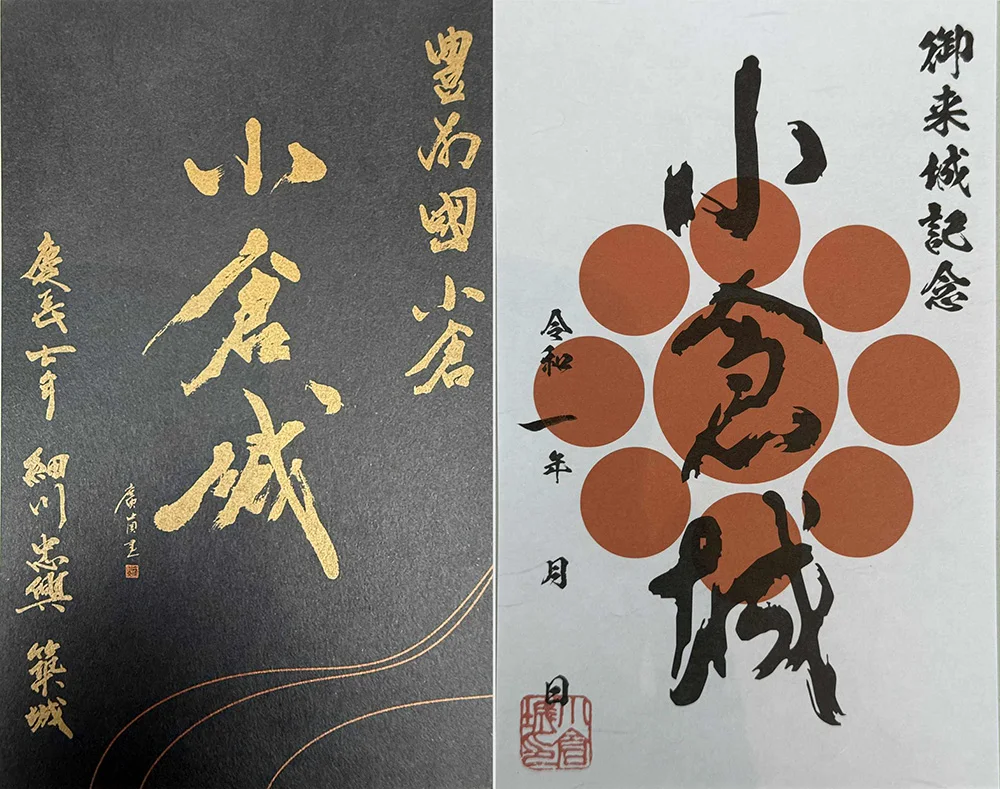 豊前國 小倉
小倉城
慶長七年 細川忠興 築城
御来城記念
小倉城
令和一年 月 日
小倉城印